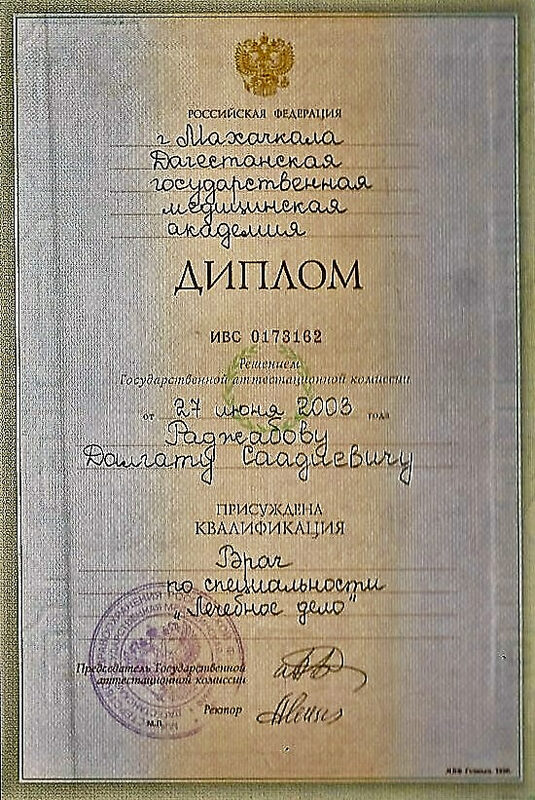 РОССИЙСКАЯ ФЕДЕРАЦИЯ
г Махачкала
Дагестанская
государственная
медицинская
академия
ДИПЛОМ
ИВС 0173162
Решением
Государственной аттестационной комиссии
от 27 июня 2003 года
Раджабову
Далгату Саадиевичу
ПРИСУЖДЕНА
КВАЛИФИКАЦИЯ
Врач
по специальности
„Лечебное дело"
Председатель Государственной
аттестационной комиссии
Ректор
М.П.